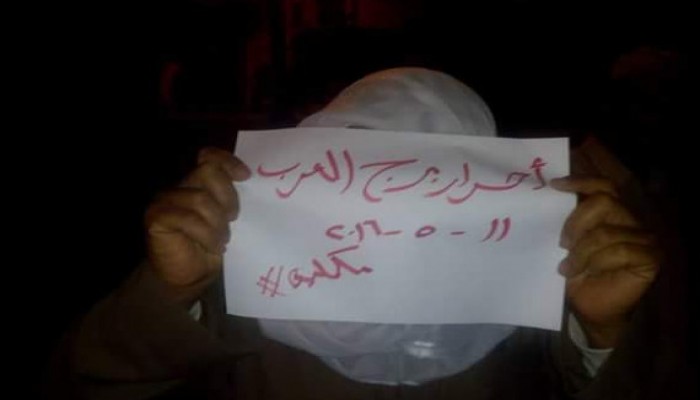 أحرار برج العرب
١١ - ٥ - ٢٠١٦
#مكملين